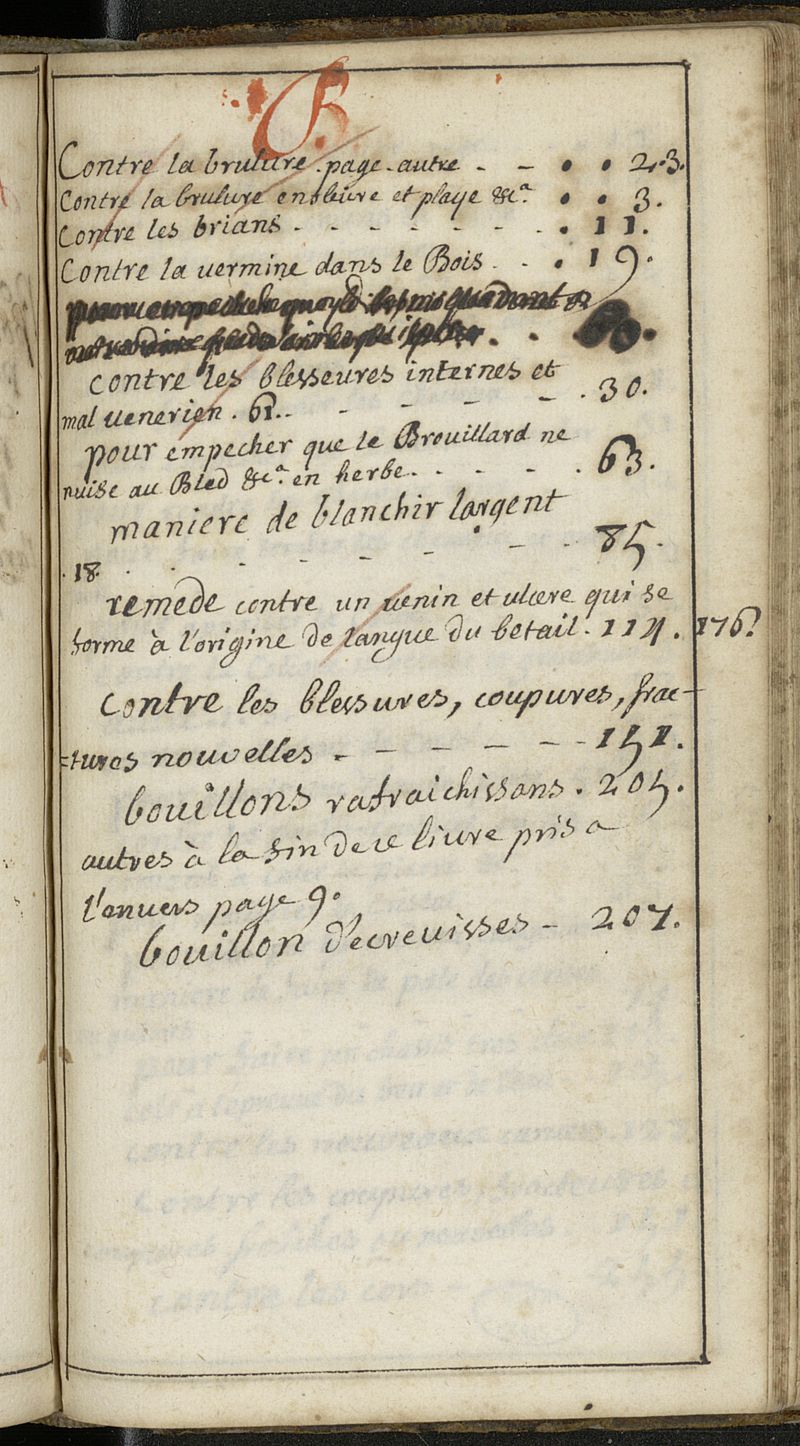 B.
Contre la brulure page autre - - . . 2.3.
Contre la brulure enoleure et playe &c.a . . 3.
Contre les brians - - - - - - - . 11.
Contre la vermine dans le Bois - - . 19.
contre les blesseures internes et
mal venerien . 61.. - - - - . 30.
pour empecher que le Brouillard ne
nuise au Bled &c.a en herbe - - - - . 63.
maniere de blanchir largent
. 18. - - - - - - . 85.
remede contre un venin et ulcere qui se
forme à l'origine de langue du betail . 114. 176.
Contre les blessures, coupures, frac-
=tures nouvelles - - - - - - 151.
bouillons rafraichissans . 205.
autres à la fin de ce livre pris a
l'anvers page 9.
bouillon d'ecrevisses - 207.